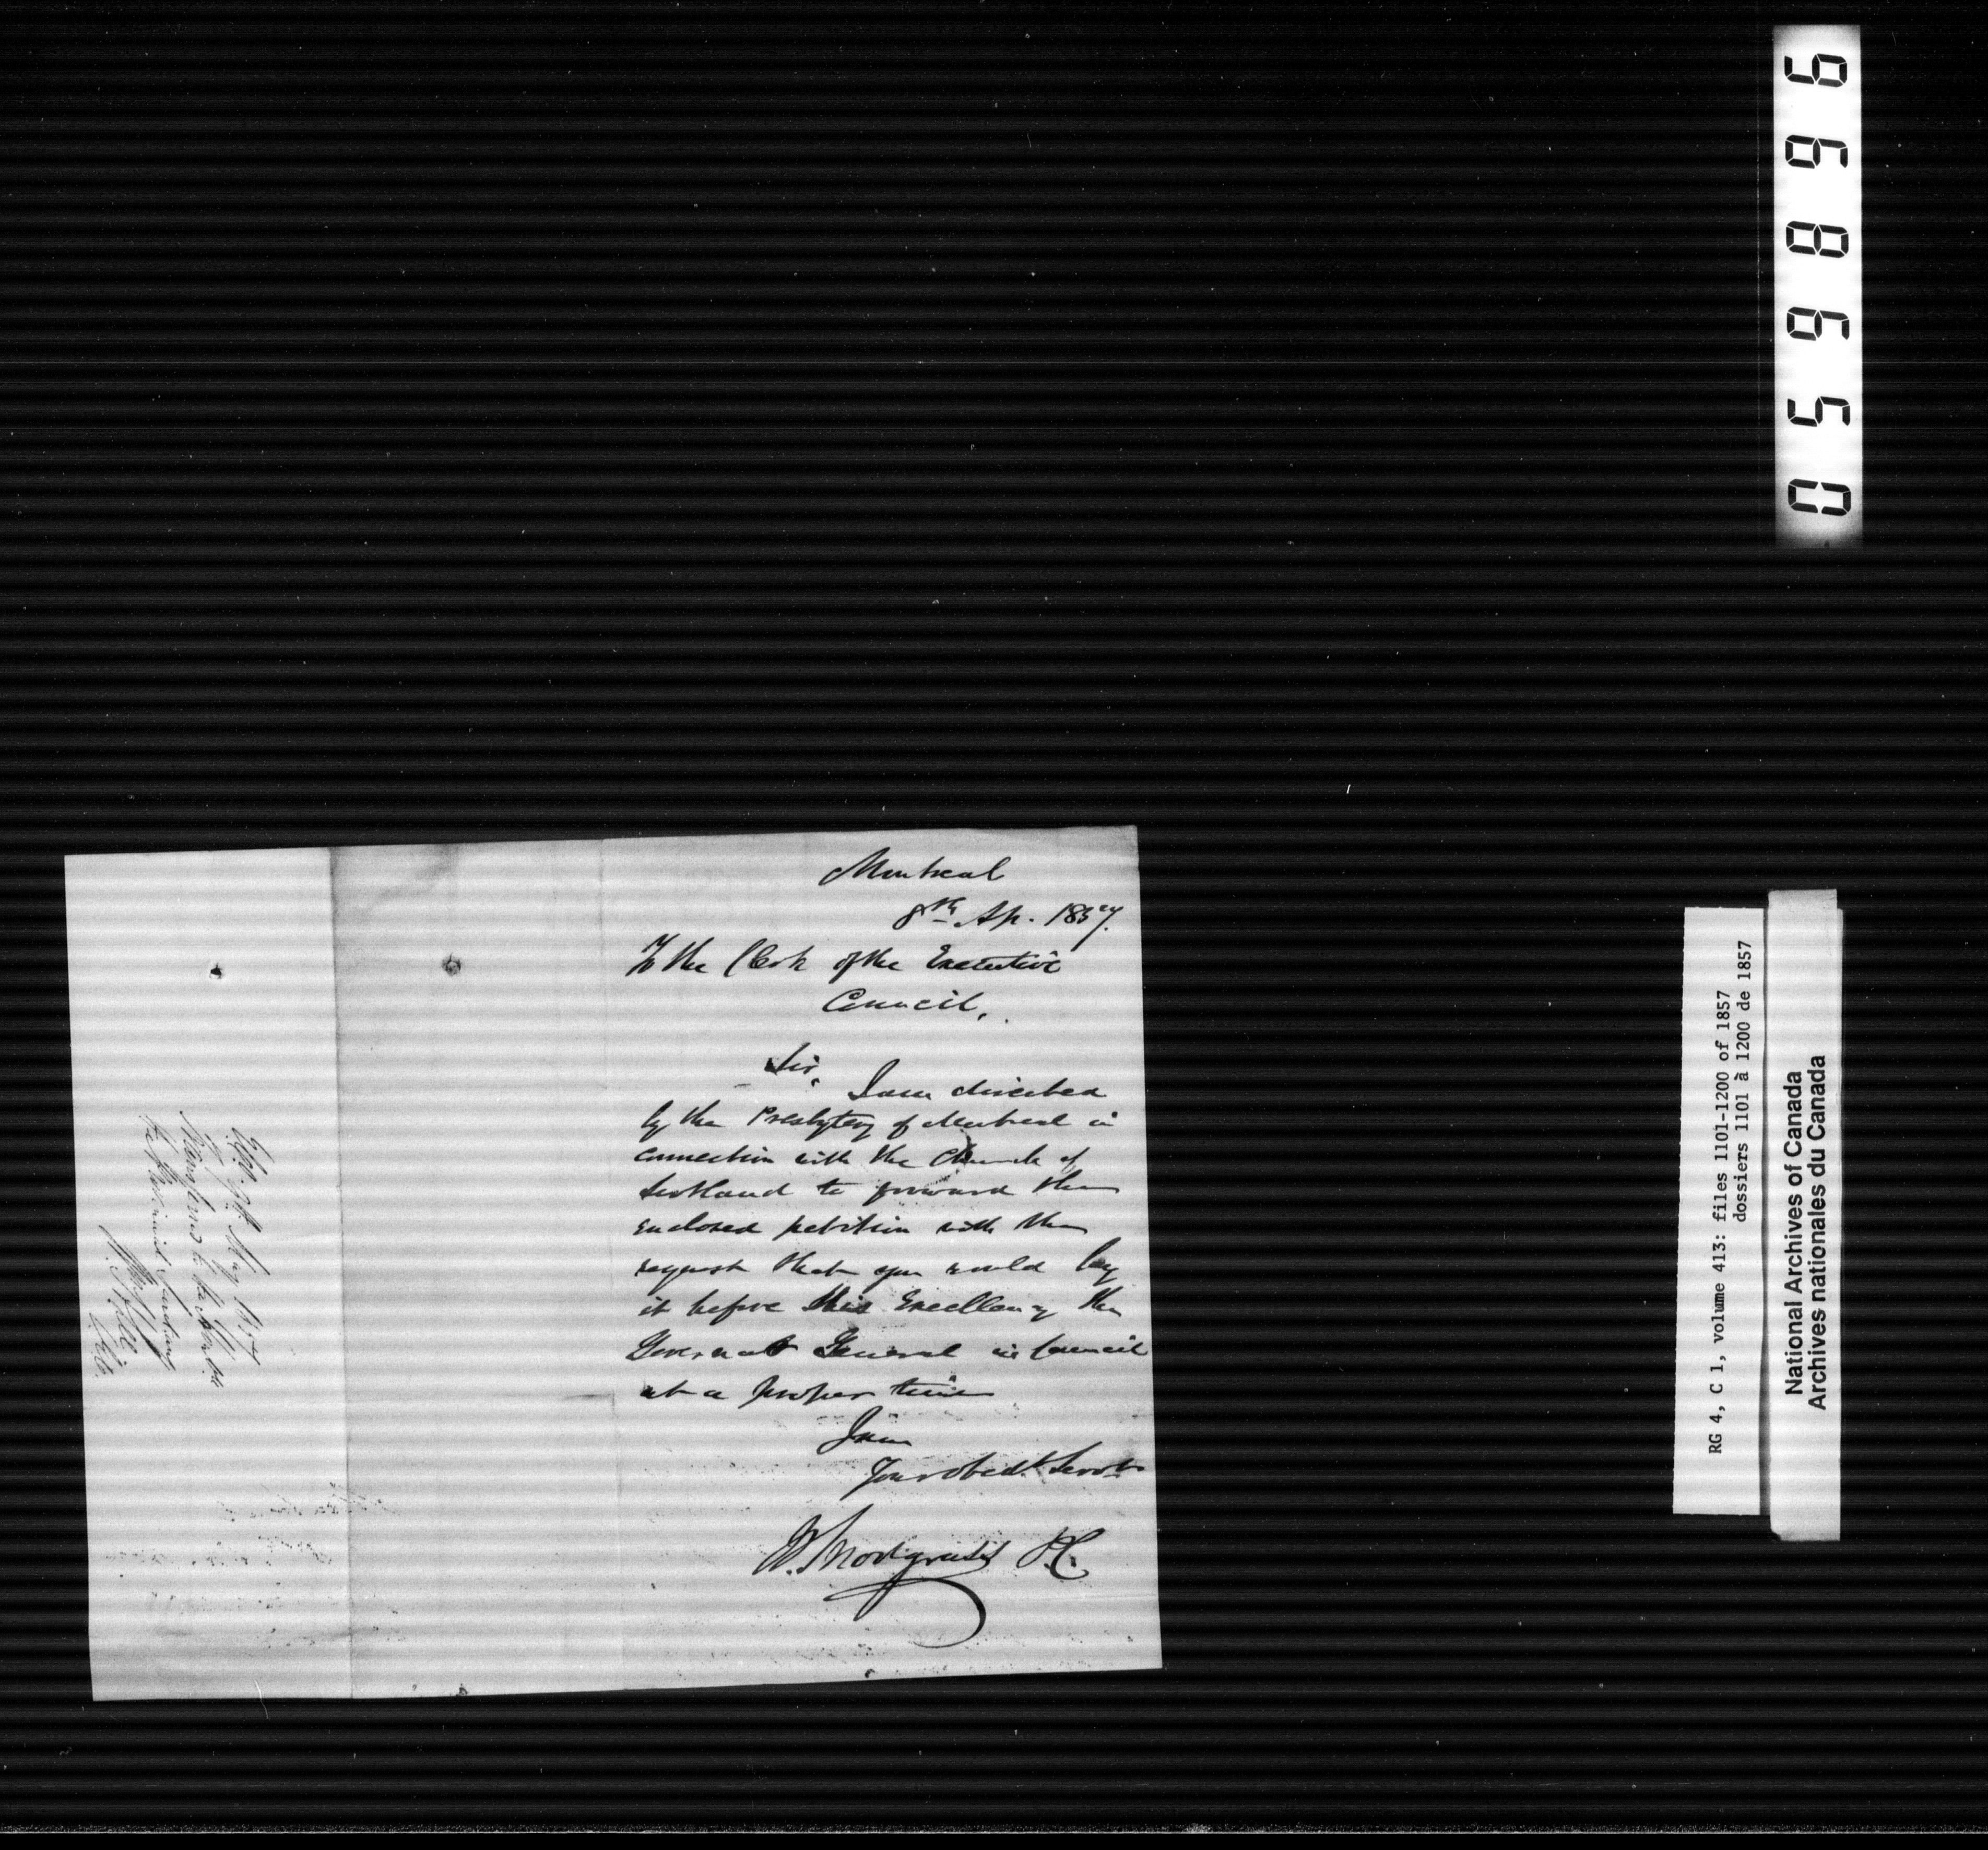 Montreal
8th Ap. 1857.
To the Clerk of the Executive
Council,
Sir,
I am directed
by the Presbytery of Montreal in
connection with the Church of
Scotland to forward the
enclosed petition with the
request that you would lay
it before His Excellency the
Governor General in Council
at a proper time
I am
Your obedt. Servt.
W. Snodgrass P.C.
May 1857
Transferred to the
the Provincial Secretary
059896
RG 4, C 1, volume 413: files 1101-1200 of 1857
dossiers 1101 à 1200 de 1857
National Archives of Canada
Archives nationales du Canada